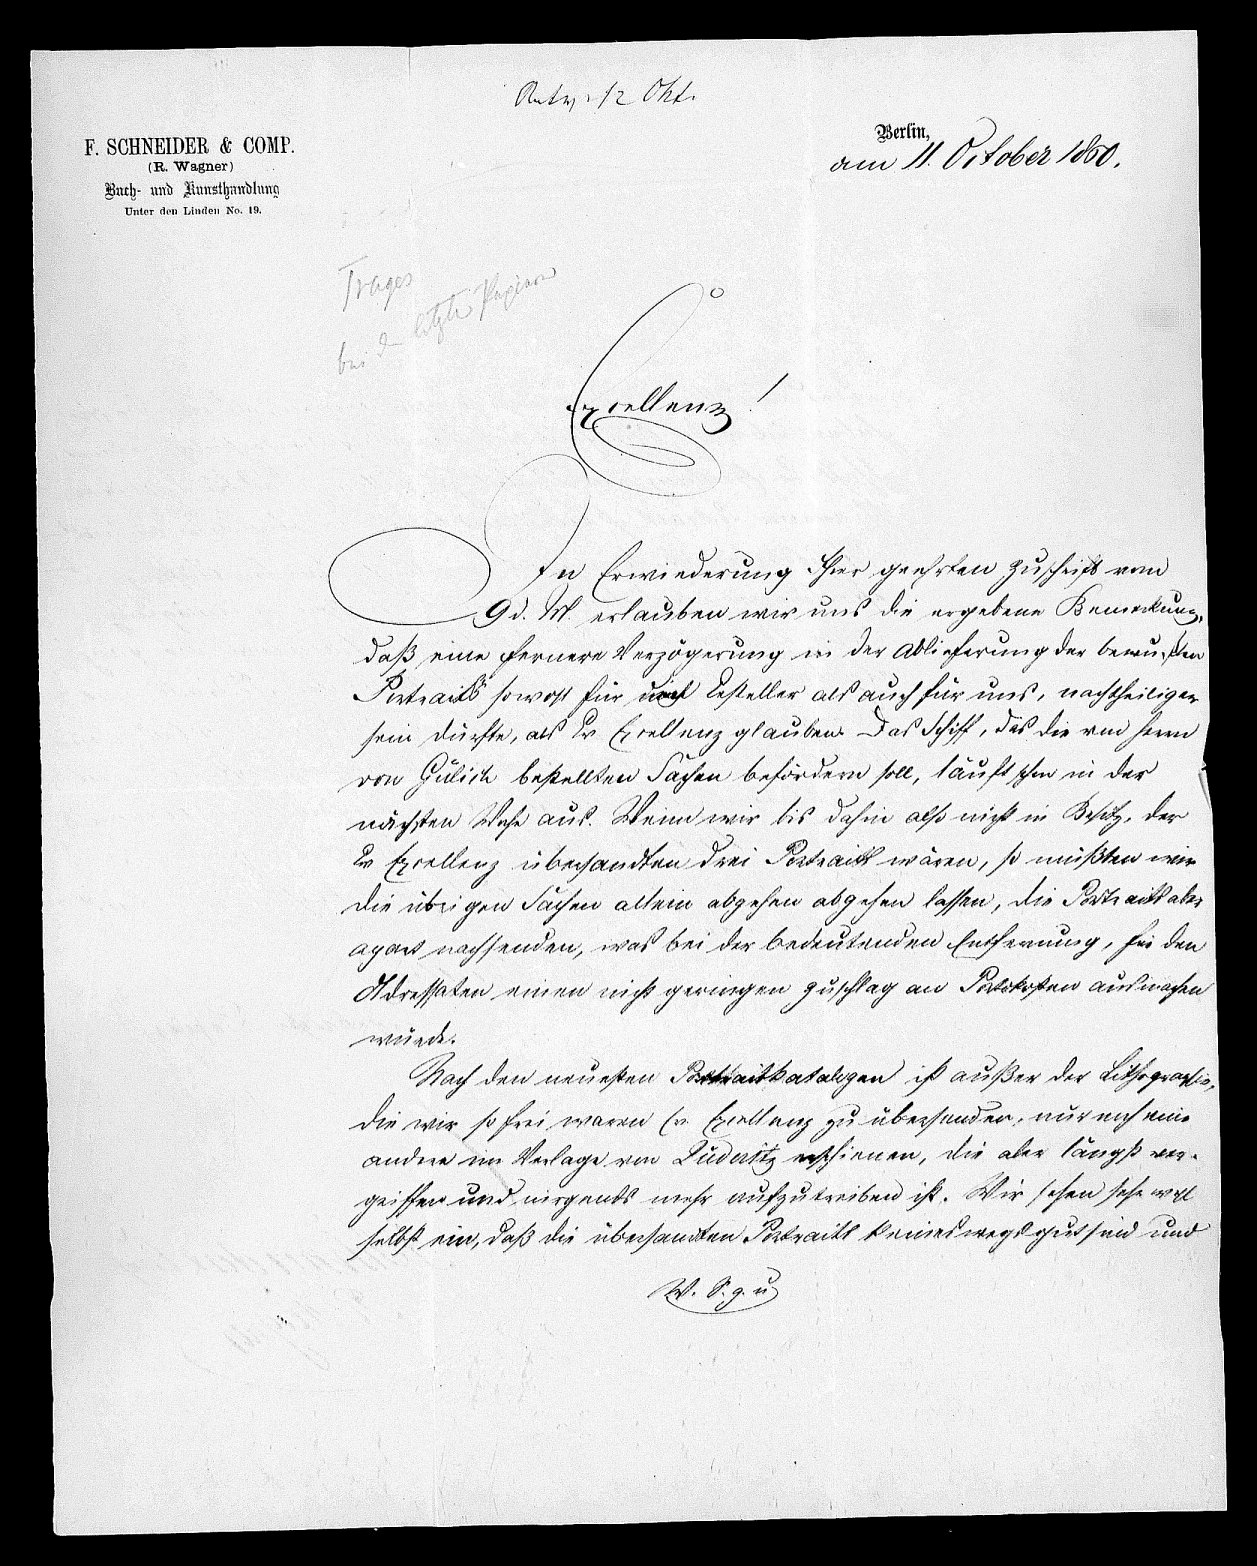 Antw. 12 Okt.
F. SCHNEIDER & COMP.
(R. Wagner)
Buch- und Kunsthandlung
Unter den Linden No. 19.
Berlin,
am 11. October 1860.
Excellenz!
In Erwiederung Ihrer geehrten Zuschrift vom
9 d. M. erlauben wir uns die ergebene Bemerkung,
daß eine fernere Verzögerung in der Ablieferung der bewußten
Portraits sowohl für den Besteller als auch für uns, nachtheiliger
sein dürfte, als Ew Excellenz glauben. Das Schiff, das die von Herrn
von Gülich bestellten Sachen befördern soll, läuft schon in der
nächsten Woche aus. Wenn wir bis dahin also nicht in Besitz, der
Ew Excellenz übersandten drei Portraits wären, so müßten wir
die übrigen Sachen allein abgehen abgehen lassen, die Portraits aber
apart nachsenden, was bei der bedeutenden Entfernung, für den
Adressaten einen nicht geringen Zuschlag an Portokosten ausmachen
würde.
Nach den neuesten Portraitkatalogen ist außer der Lithographie,
die wir so frei waren Ew. Excellenz zu übersenden, nur noch eine
andere im Verlage von Lüderitz erschienen, die aber längst ver-
griffen und nirgends mehr aufzutreiben ist. Wir sehen sehr wohl
selbst ein, daß die übersandten Portraits keineswegs gut sind und
W. S. g. u